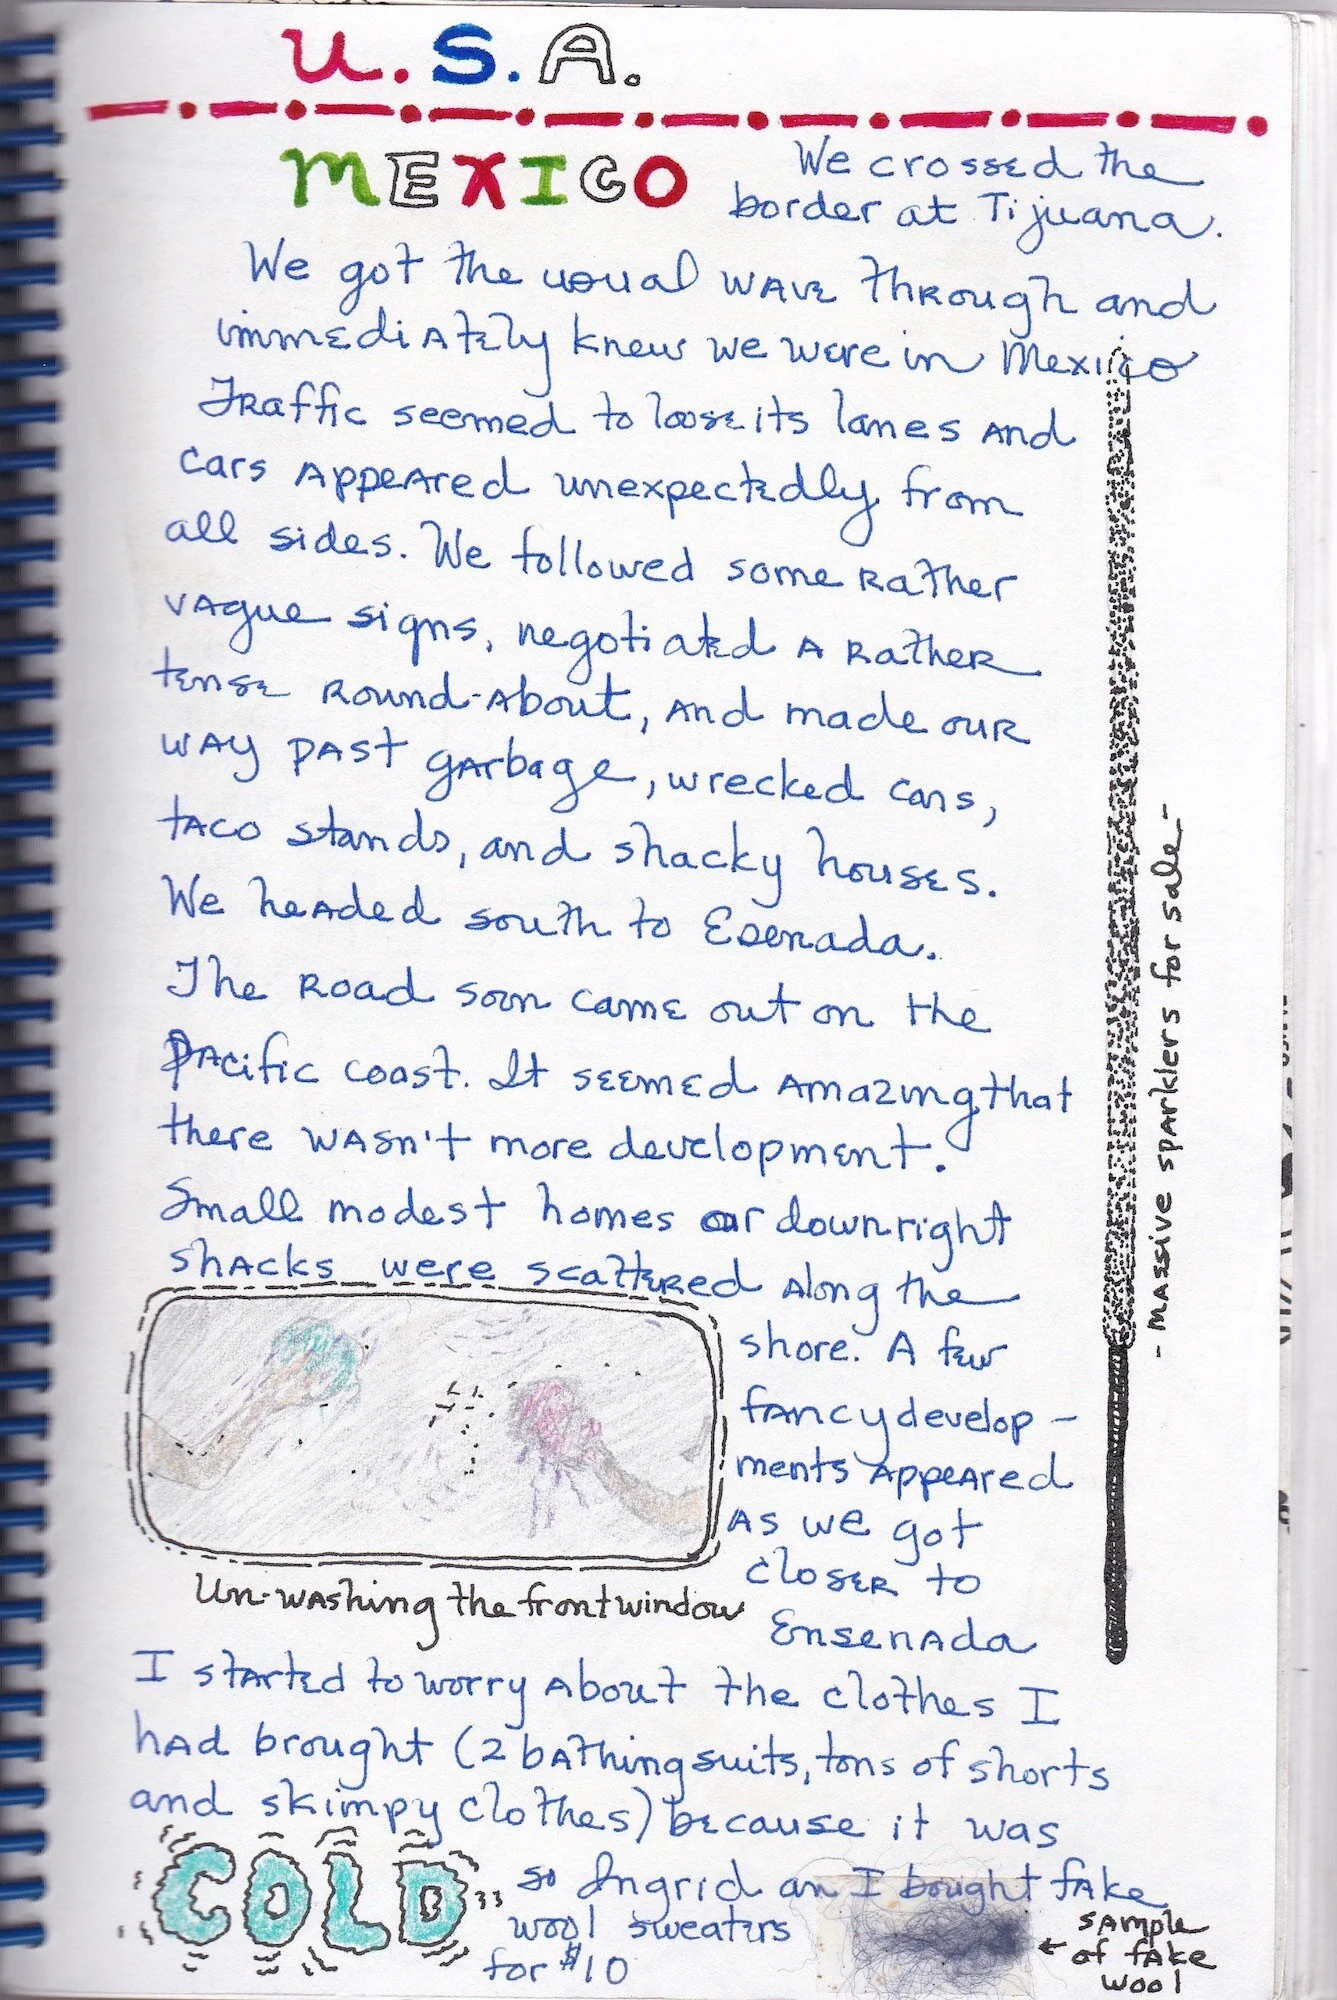 U.S.A.
MEXICO
We crossed the
border at Tijuana.
We got the usual wave through and
immediately knew we were in Mexico
Traffic seemed to loose its lanes and
cars appeared unexpectedly from
all sides. We followed some rather
vague signs, negotiated a rather
tense round-about, and made our
way past garbage, wrecked cars,
taco stands, and shacky houses.
We headed south to Esenada.
The road soon came out on the
Pacific coast. It seemed amazing that
there wasn't more development.
Small modest homes or downright
shacks were scattered along the
shore. A few
fancy develop-
ments appeared
as we got
closer to
Ensenada
- massive sparklers for sale -
Un-washing the front window
I started to worry about the clothes I
had brought (2 bathing suits, tons of shorts
and skimpy clothes) because it was
COLD
so Ingrid an I bought fake
wool sweaters
for $10
sample
of fake
wool